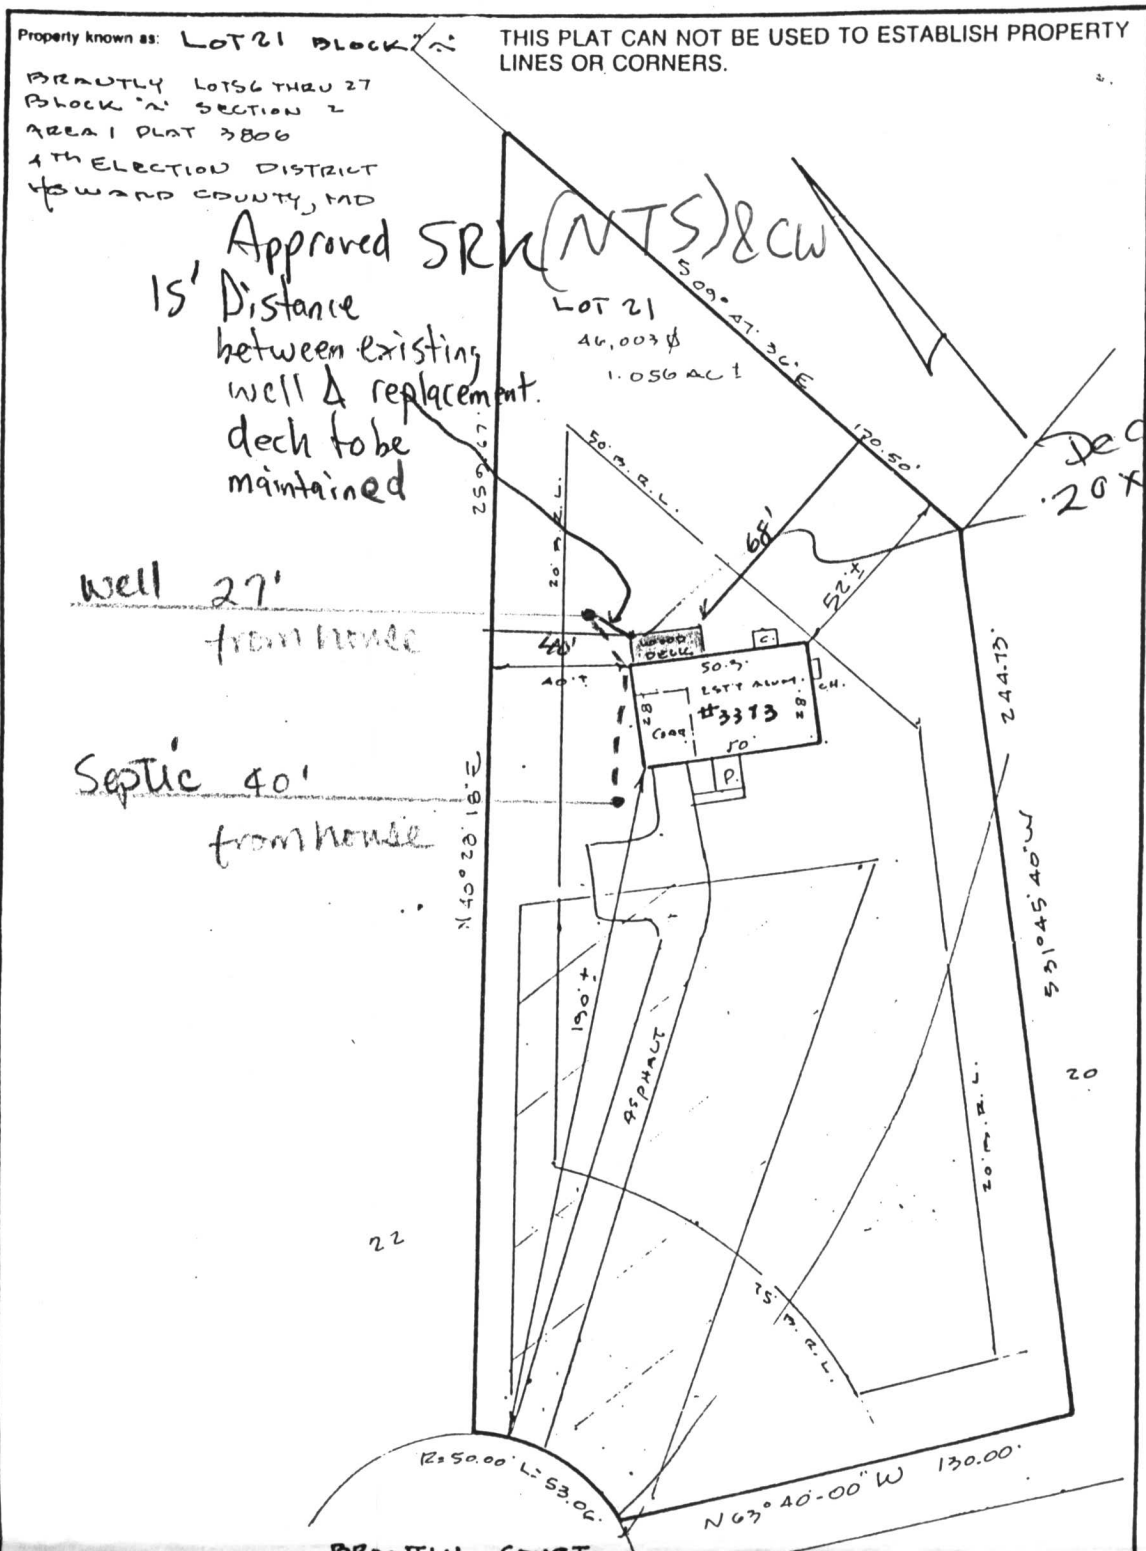 Property known as: LOT 21 BLOCK "A"
THIS PLAT CAN NOT BE USED TO ESTABLISH PROPERTY
LINES OR CORNERS.
BRANTLY LOTS 6 THRU 27
BLOCK "A" SECTION 2
AREA 1 PLAT 3806
4TH ELECTION DISTRICT
HOWARD COUNTY, MD
Approved SRK (NTS) & CW
15' Distance
between existing
well & replacement
deck to be
maintained
LOT 21
46,003 ϕ
1.056 AC ±
S 09° 47' 36" E
170.50'
259.67'
50' B.R.L.
20' B.R.L.
Dec
20 x
68'
52' ±
Well 27'
from house
40'
40' ±
WOOD
DECK
C.
50.3
2 STY ALUM.
CH.
28
28
#3373
50
P.
Septic 40'
from house
N 40° 28' 18" E
244.73'
S 31° 45' 40" W
190' ±
ASPHALT
20
20' B.R.L.
22
75' B.R.L.
R=50.00' L=53.06'
N 63° 40' 00" W 130.00'